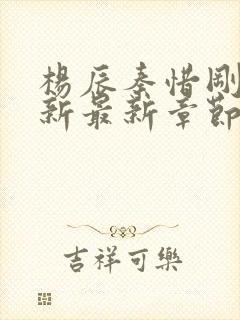 楊辰秦惜剛
新最新章節
吉祥可樂